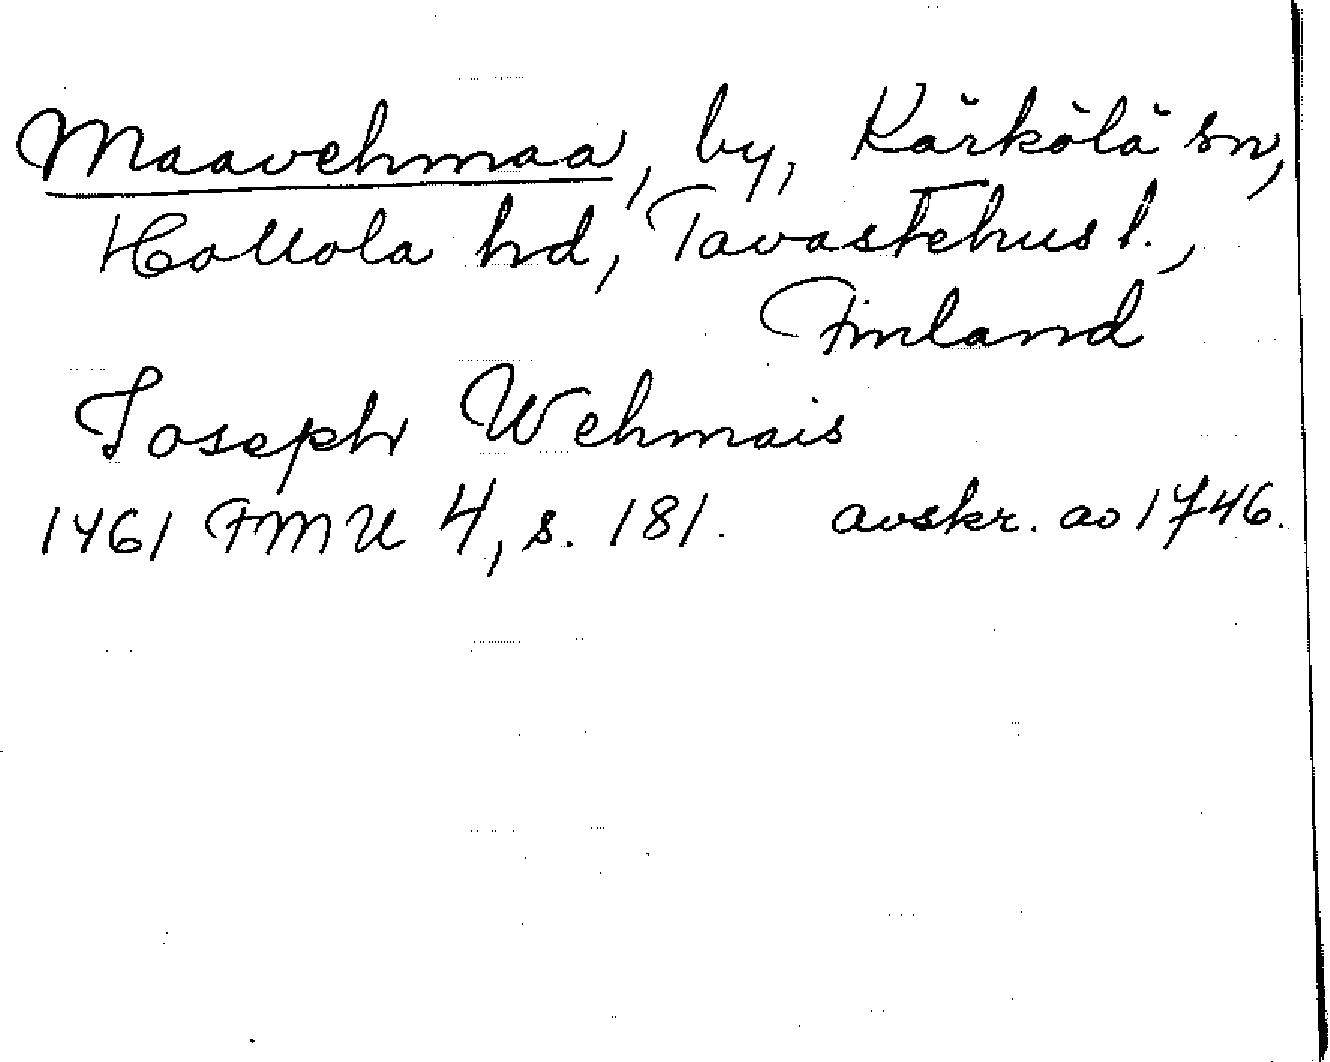 Maavehmaa, by, Kärkölä sn,
Hollola hd, Tavastehus l.,
Finland
Joseph Wehmais
1461 FMU 4, s. 181. avskr. ao 1746.